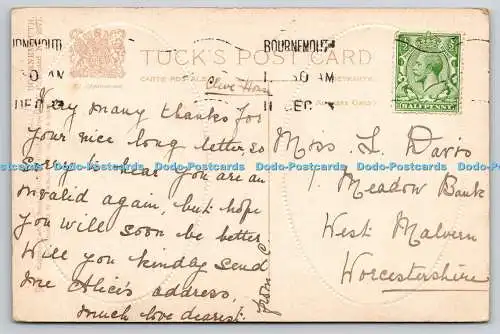 BOURNEMOUTH
TUCK'S POST CARD
CARTE POSTALE
Clive House
BOURNEMOUTH
30 AM
11 DEC
HALFPENNY
Very many thanks for
your nice long letter so
sorry to hear you are an
invalid again, but hope
you will soon be better.
Will you kindly send
me Alice's address,
much love dearest.
from C
Miss L. Davis
1. Meadow Bank
West Malvern
Worcestershire
Da-Postcards Da-Postcards Da-Postcards Da-Postcards Da-Postcards Da-Postcards